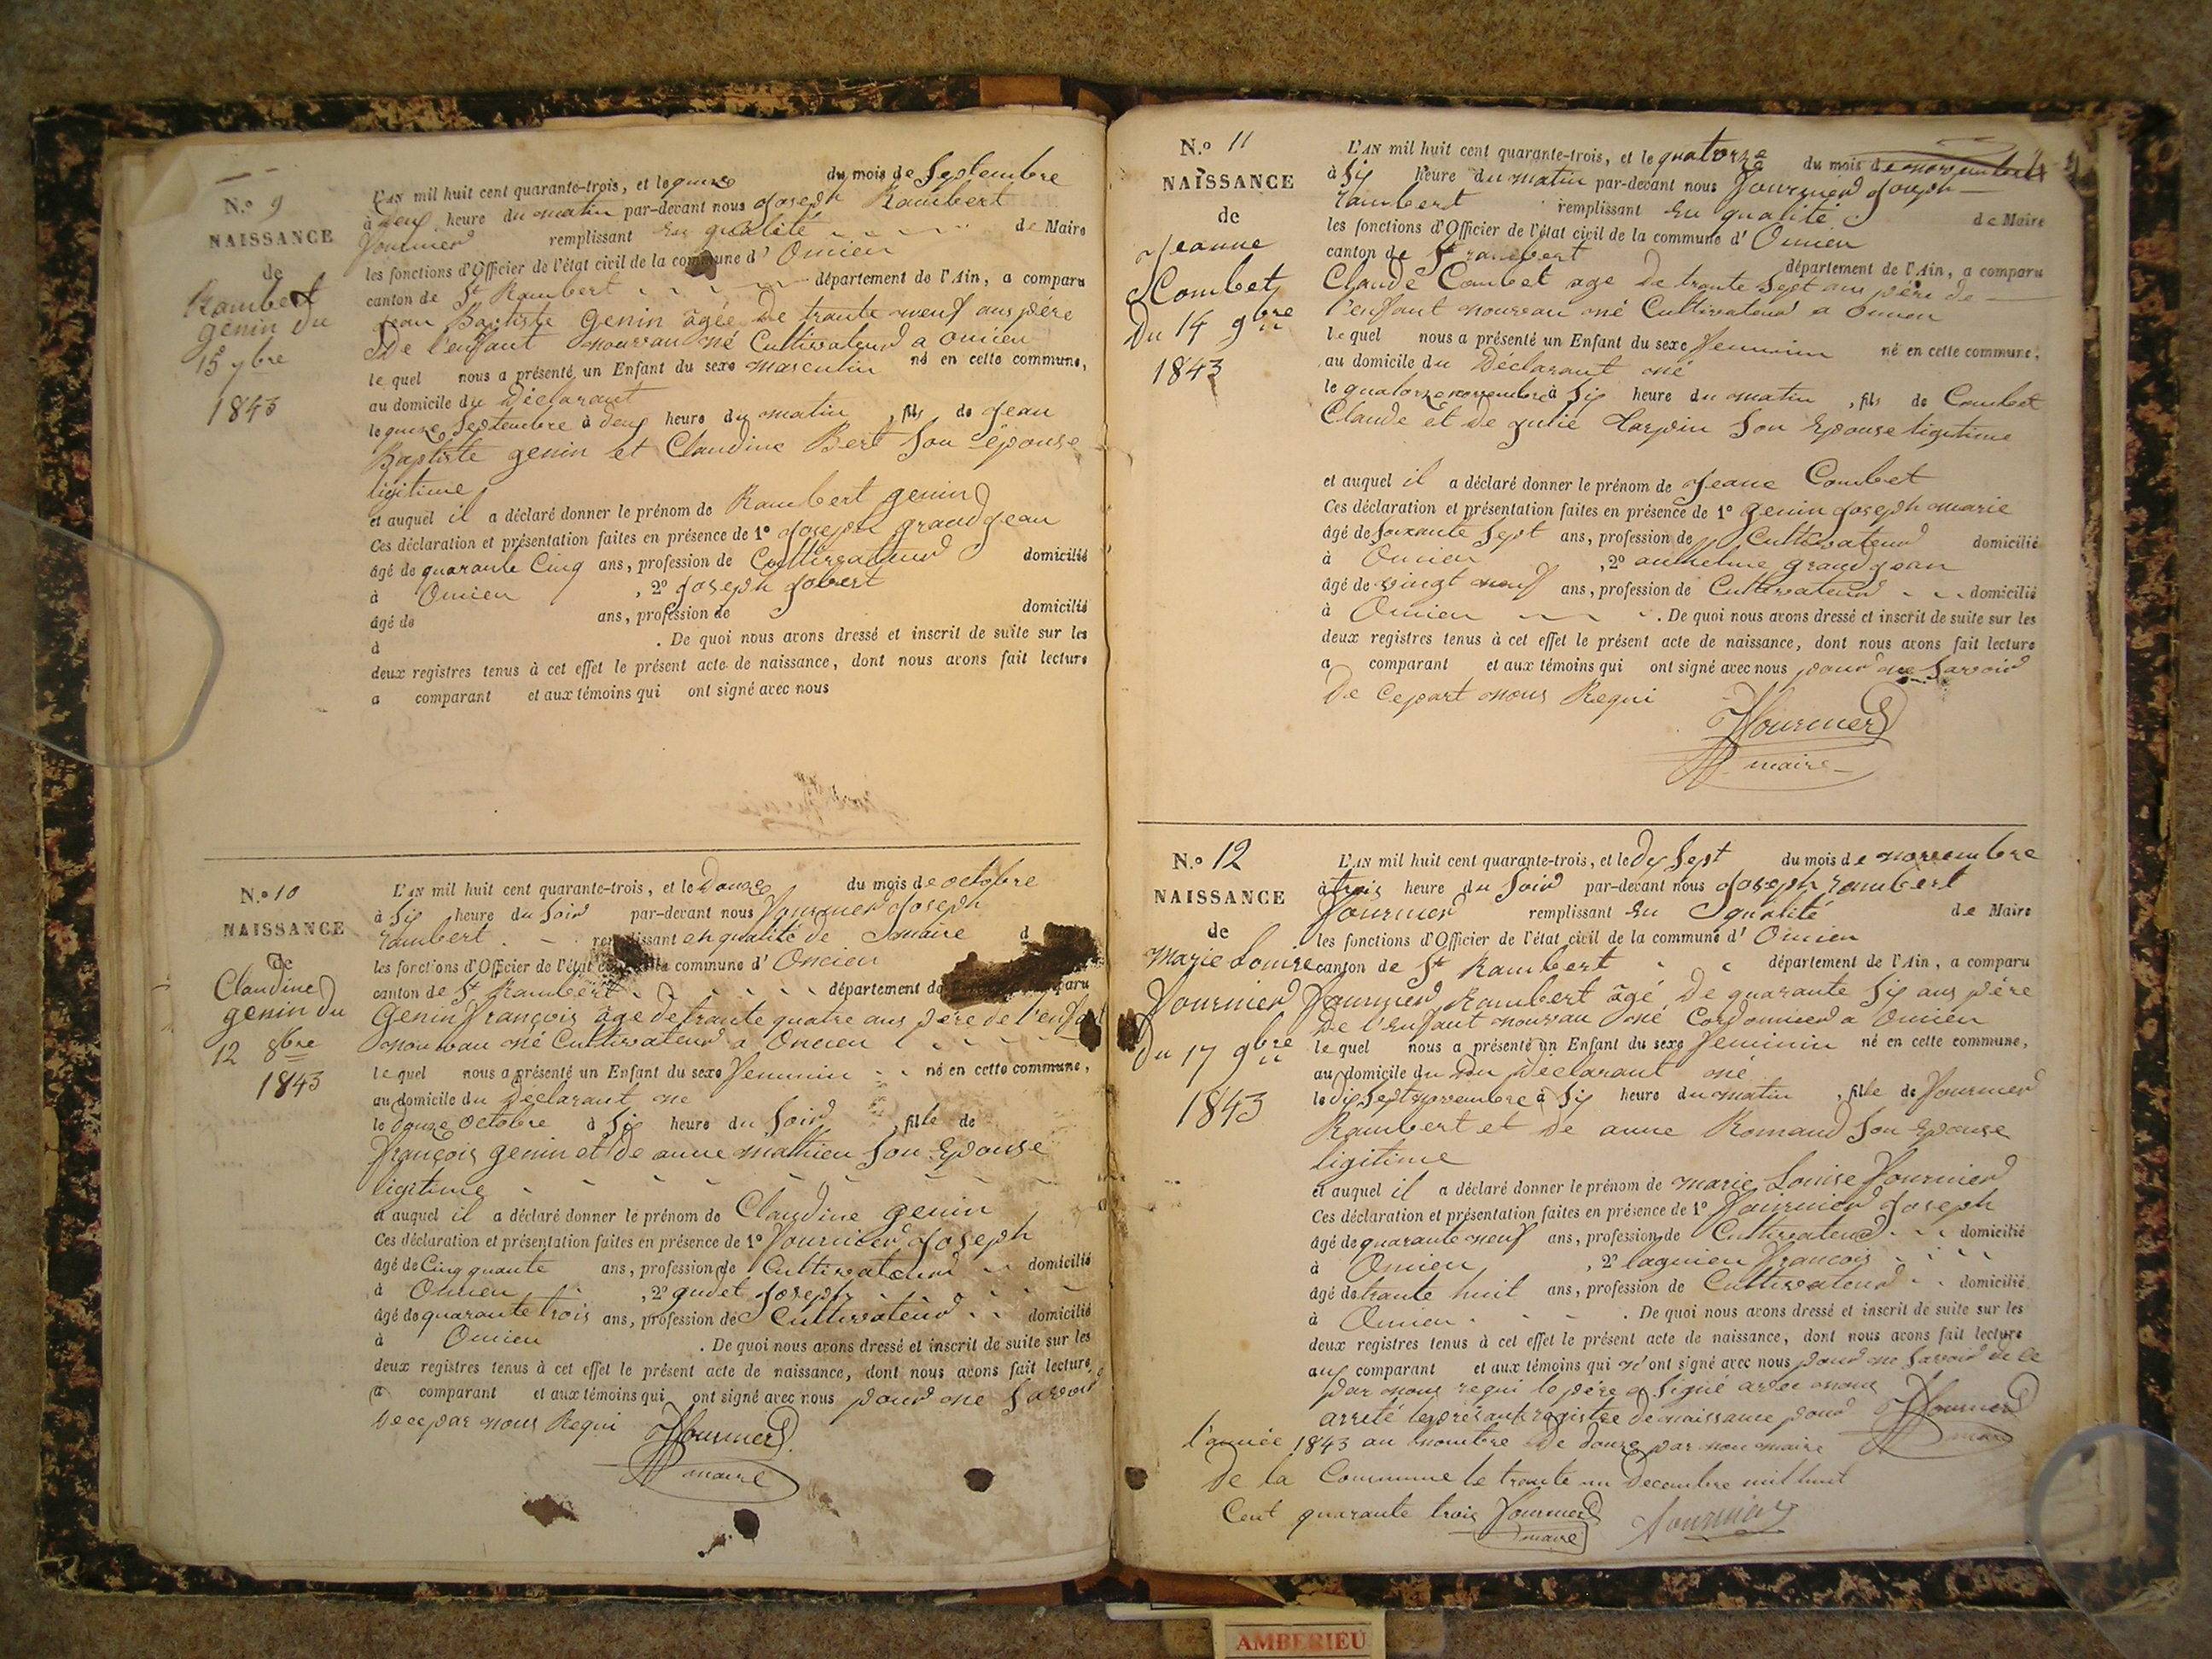 N.º 9
NAISSANCE
de
Rambert
genin du
15 7bre
1843
L'AN mil huit cent quarante-trois, et le quinze du mois de Septembre
à deux heure du matin par-devant nous Joseph Rambert
Fournier remplissant en qualité de Maire
les fonctions d'Officier de l'état civil de la commune d' Oncieu
canton de St Rambert département de l'Ain, a comparu
Jean Baptiste Genin âgée De trante neuf ans père
De l'enfant nouvau né Cultivateur a oncieu
le quel nous a présenté un Enfant du sexe masculin né en cette commune,
au domicile du Déclarant
le quinze Septembre à deux heure du matin , fils de Jean
Baptiste genin et Claudine Bert Son épouse
ligitime
et auquel il a déclaré donner le prénom de Rambert genin
Ces déclaration et présentation faites en présence de 1º Joseph grand jean
âgé de quarante Cinq ans, profession de Cultivateur domicilié
à Oncieu , 2º Joseph Jobert
âgé de ans, profession de domicilié
à . De quoi nous avons dressé et inscrit de suite sur les
deux registres tenus à cet effet le présent acte de naissance, dont nous avons fait lecture
a comparant et aux témoins qui ont signé avec nous
N.º 10
NAISSANCE
de
Claudine
genin du
12 8bre
1843
L'AN mil huit cent quarante-trois, et le Douze du mois de octobre
à Six heure du Soir par-devant nous Fournier Joseph
rambert remplissant en qualité de maire
les fonctions d'Officier de l'état commune d' Oncieu
canton de St Rambert département
Genin françois âge de trante quatre ans père de l'enfant
nouvau né Cultivateur a Oncieu
le quel nous a présenté un Enfant du sexe Feminin né en cette commune,
au domicile du Declarant né
le douze octobre à Six heure du Soir , fille de
françois genin et de anne mathieu Son Epouse
ligitime
et auquel il a déclaré donner le prénom de Claudine genin
Ces déclaration et présentation faites en présence de 1º Fournier Joseph
âgé de Cinq quante ans, profession de Cultivateur domicilié
à Oncieu , 2º gudet Joseph
âgé de quarante trois ans, profession de Cultivateur domicilié
à Oncieu . De quoi nous avons dressé et inscrit de suite sur les
deux registres tenus à cet effet le présent acte de naissance, dont nous avons fait lecture
a comparant et aux témoins qui ont signé avec nous pour ne Savoir
De ce par nous Requi Fournier
maire
N.º 11
NAISSANCE
de
Jeanne
Combet
Du 14 9bre
1843
L'AN mil huit cent quarante-trois, et le quatorze du mois de novembre
à Six heure du matin par-devant nous Fournier Joseph
rambert remplissant en qualité de Maire
les fonctions d'Officier de l'état civil de la commune d' Oncieu
canton de St rambert département de l'Ain, a comparu
Claude Combet age De trante Sept ans père de
l'enfant nouvau né Cultivateur a Oncieu
le quel nous a présenté un Enfant du sexe Feminin né en cette commune,
au domicile du Déclarant né
le quatorze novembre à Six heure du matin , fils de Combet
Claude et De Julie Carpin Son Epouse ligitime
et auquel il a déclaré donner le prénom de Jeane Combet
Ces déclaration et présentation faites en présence de 1º Genin Joseph marie
âgé de Soixante Sept ans, profession de Cultivateur domicilié
à Oncieu , 2º anthelme grand jean
âgé de vingt neuf ans, profession de Cultivateur domicilié
à Oncieu . De quoi nous avons dressé et inscrit de suite sur les
deux registres tenus à cet effet le présent acte de naissance, dont nous avons fait lecture
a comparant et aux témoins qui ont signé avec nous pour ne Savoir
De Cepart nous Requi
Fournier
maire
N.º 12
NAISSANCE
de
Marie Louise
Fournier
Du 17 9bre
1843
L'AN mil huit cent quarante-trois, et le Dix Sept du mois de novembre
à trois heure du Soir par-devant nous Joseph rambert
Fournier remplissant en qualité de Maire
les fonctions d'Officier de l'état civil de la commune d' Oncieu
canton de St Rambert département de l'Ain, a comparu
Fournier Rambert âgé De quarante Six ans père
De l'Enfant nouvau né Cordonnier a Oncieu
le quel nous a présenté un Enfant du sexe Feminin né en cette commune,
au domicile du Du Déclarant né
le dix Sept novembre à Six heure du matin , fille de Fournier
Rambert et De anne Romand Son Epouse
ligitime
et auquel il a déclaré donner le prénom de marie Louise Fournier
Ces déclaration et présentation faites en présence de 1º Fournier Joseph
âgé de quarante neuf ans, profession de Cultivateur domicilié
à Oncieu , 2º lagnieu françois
âgé de trante huit ans, profession de Cultivateur domicilié
à Oncieu . De quoi nous avons dressé et inscrit de suite sur les
deux registres tenus à cet effet le présent acte de naissance, dont nous avons fait lecture
aux comparant et aux témoins qui n'ont signé avec nous pour ne Savoir de ce
par nous requi le père a Signé avec nous
arreté le présant registre de naissance pour Fournier
l'année 1843 au nombre De douze par nou maire maire
De la Commune le trante un Decembre mil huit
Cent quarante trois Fournier Fournier
maire
AMBERIEU